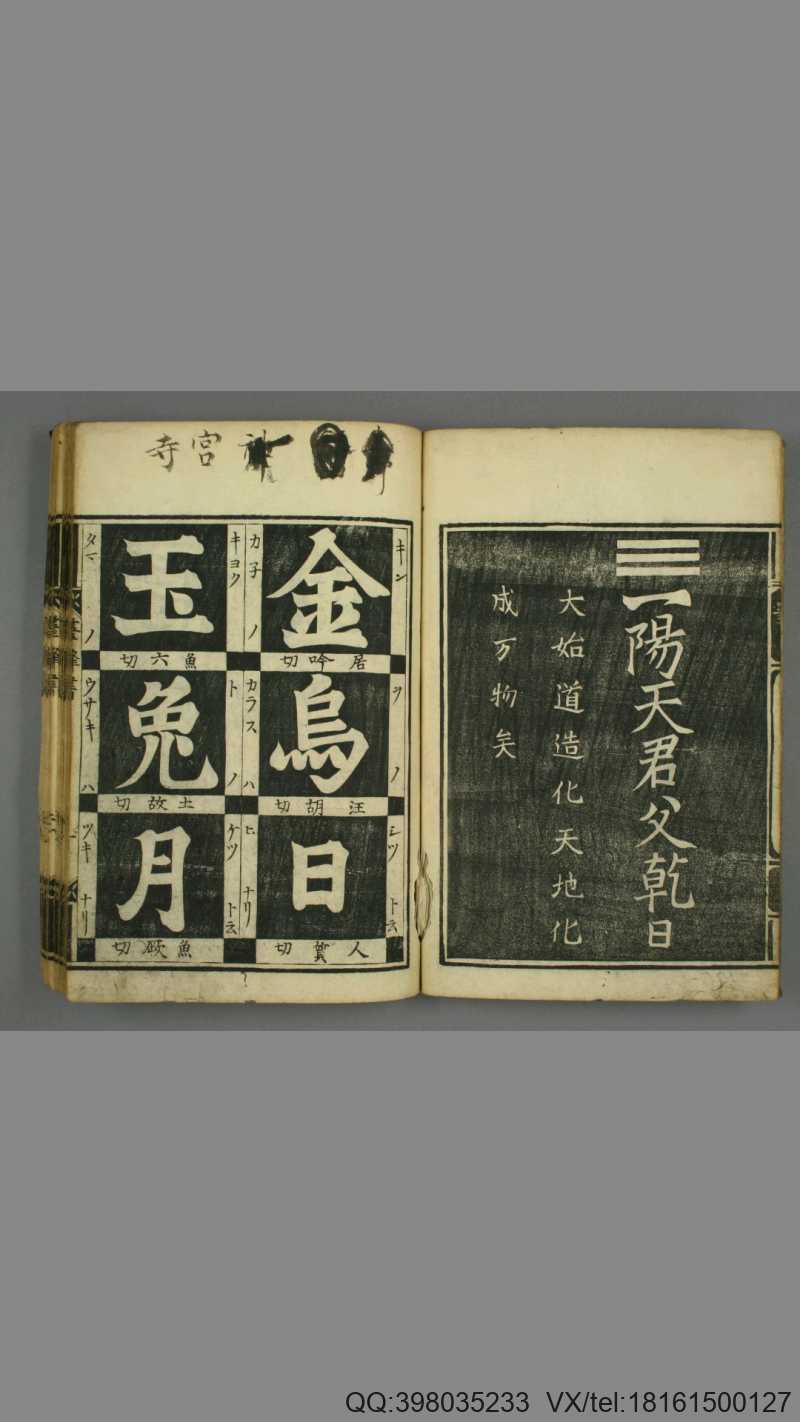 一陽天君父乾日
大始道造化天地化
成万物矣
宮寺
キン
ヲノ
シツ
ト云
金烏日
居吟切
汪胡切
人質切
カ子ノ
カラスハ
ヒナリ
キヨク
トノ
ケツ
ト云
玉兔月
魚六切
土故切
魚厥切
タマノ
ウサキハ
ツキナリ
QQ:398035233 VX/tel:18161500127